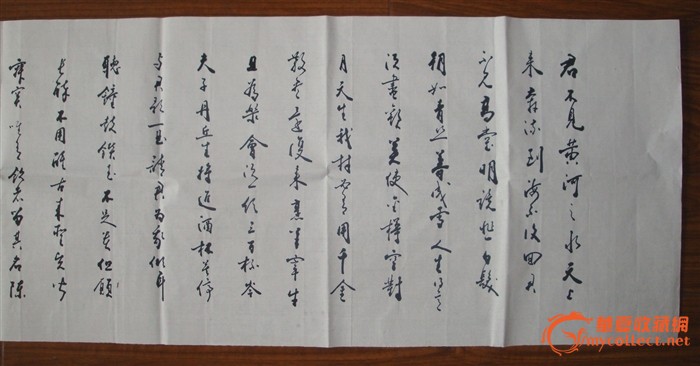 君不見黄河之水天上
来奔流到海不復回君
不見高堂明鏡悲白髮
朝如青丝暮成雪人生得意
須盡歡莫使金樽空對
月天生我材必有用千金
散盡還復来烹羊宰牛
且為樂會須一飲三百杯岑
夫子丹丘生将進酒杯莫停
与君歌一曲請君为我倾耳
聽鐘鼓饌玉不足貴但願
长醉不用醒古来聖贤皆
寂寞唯有飲者留其名陈
華夏收藏網
mycollect.net